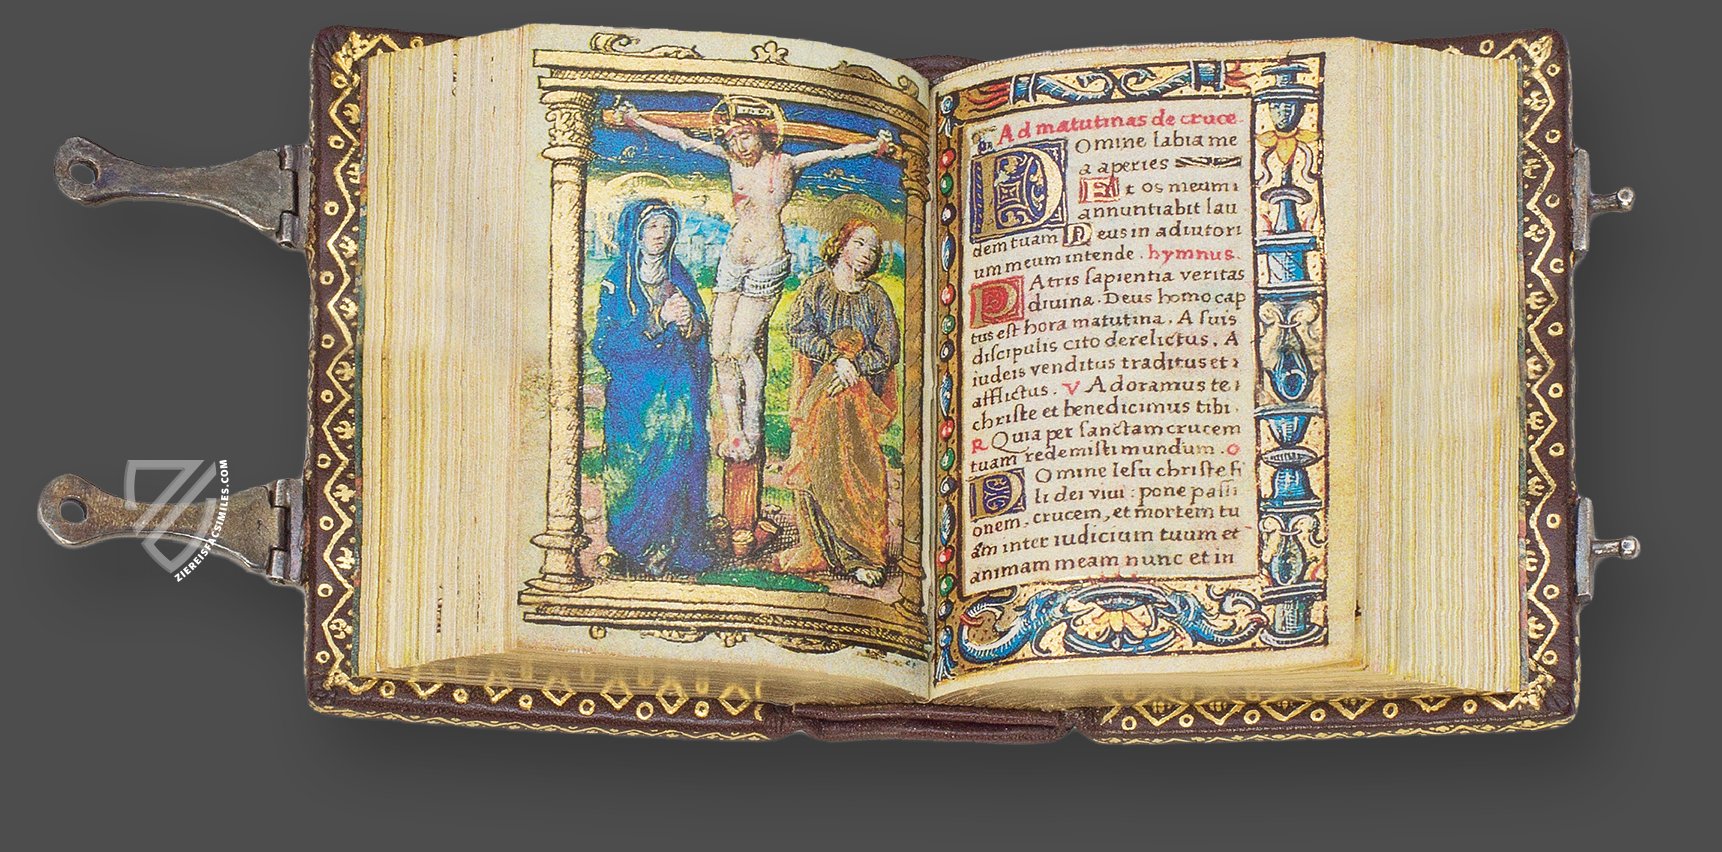 Ad matutinas de cruce.
Domine labia me
a aperies
Et os meum
annuntiabit lau
dem tuam Deus in adiutori
um meum intende. hymnus.
PAtris sapientia veritas
divina. Deus homo cap
tus est hora matutina. A suis
discipulis cito derelictus. A
iudeis venditus traditus et
afflictus. V Adoramus te
christe et benedicimus tibi.
R Quia per sanctam crucem
tuam redemisti mundum. o
Domine Iesu christe fi
li dei vivi: pone passi
onem, crucem, et mortem tu
am inter iudicium tuum et
animam meam nunc et in
ZIEREISFACSIMILES.COM